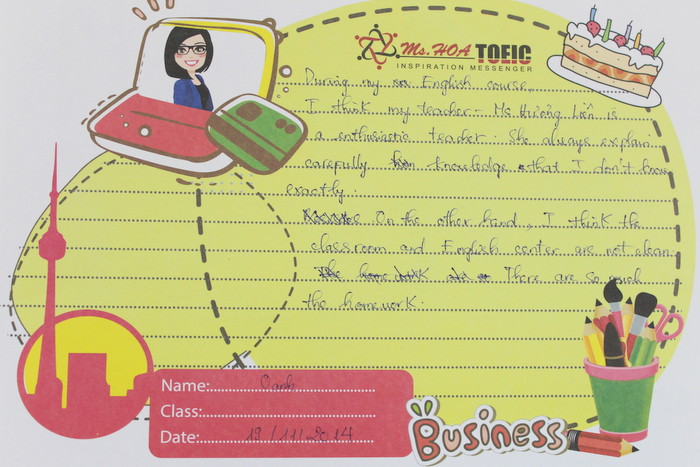 Ms.HOA TOEIC
INSPIRATION MESSENGER
During my English course,
I think my teacher - Ms Hương Liên is
a enthusiastic teacher. She always explain
carefully knowledge that I don't know
exactly.
On the other hand, I think the
classroom and English center are not clean.
There are so much
the homework.
Name: Oanh
Class:
Date: 19/11/2014
Business